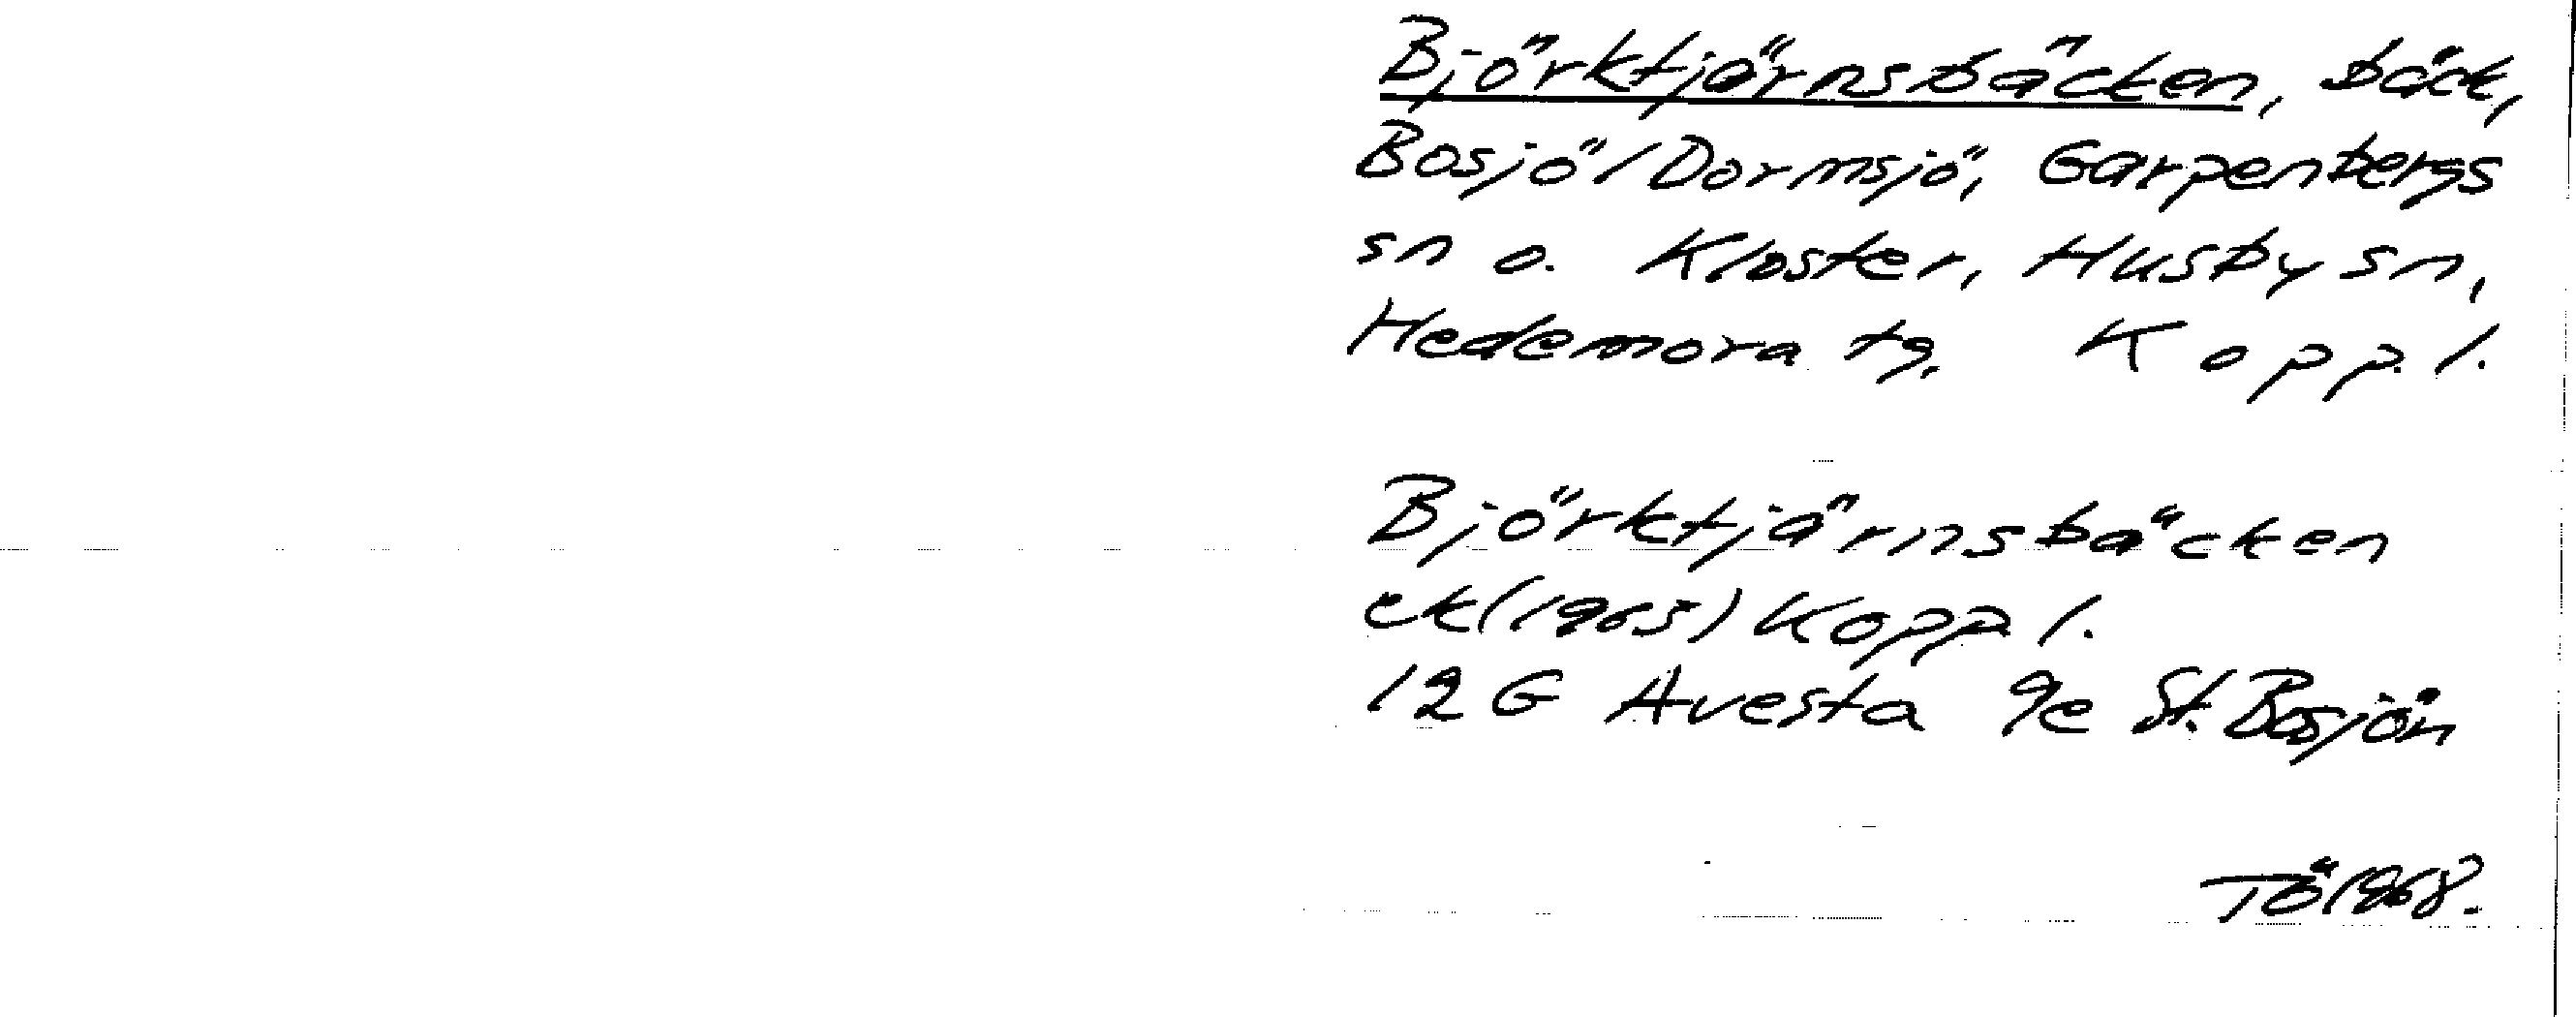 Björktjärnsbäcken, bäck,
Bosjö/Dormsjö, Garpenbergs
sn o. Kloster, Husby sn,
Hedemora tg. Kopp. l.
Björktjärnsbäcken
ek (1965) Kopp. l.
12 G Avesta 9e St. Bosjön
TÖ 1968.